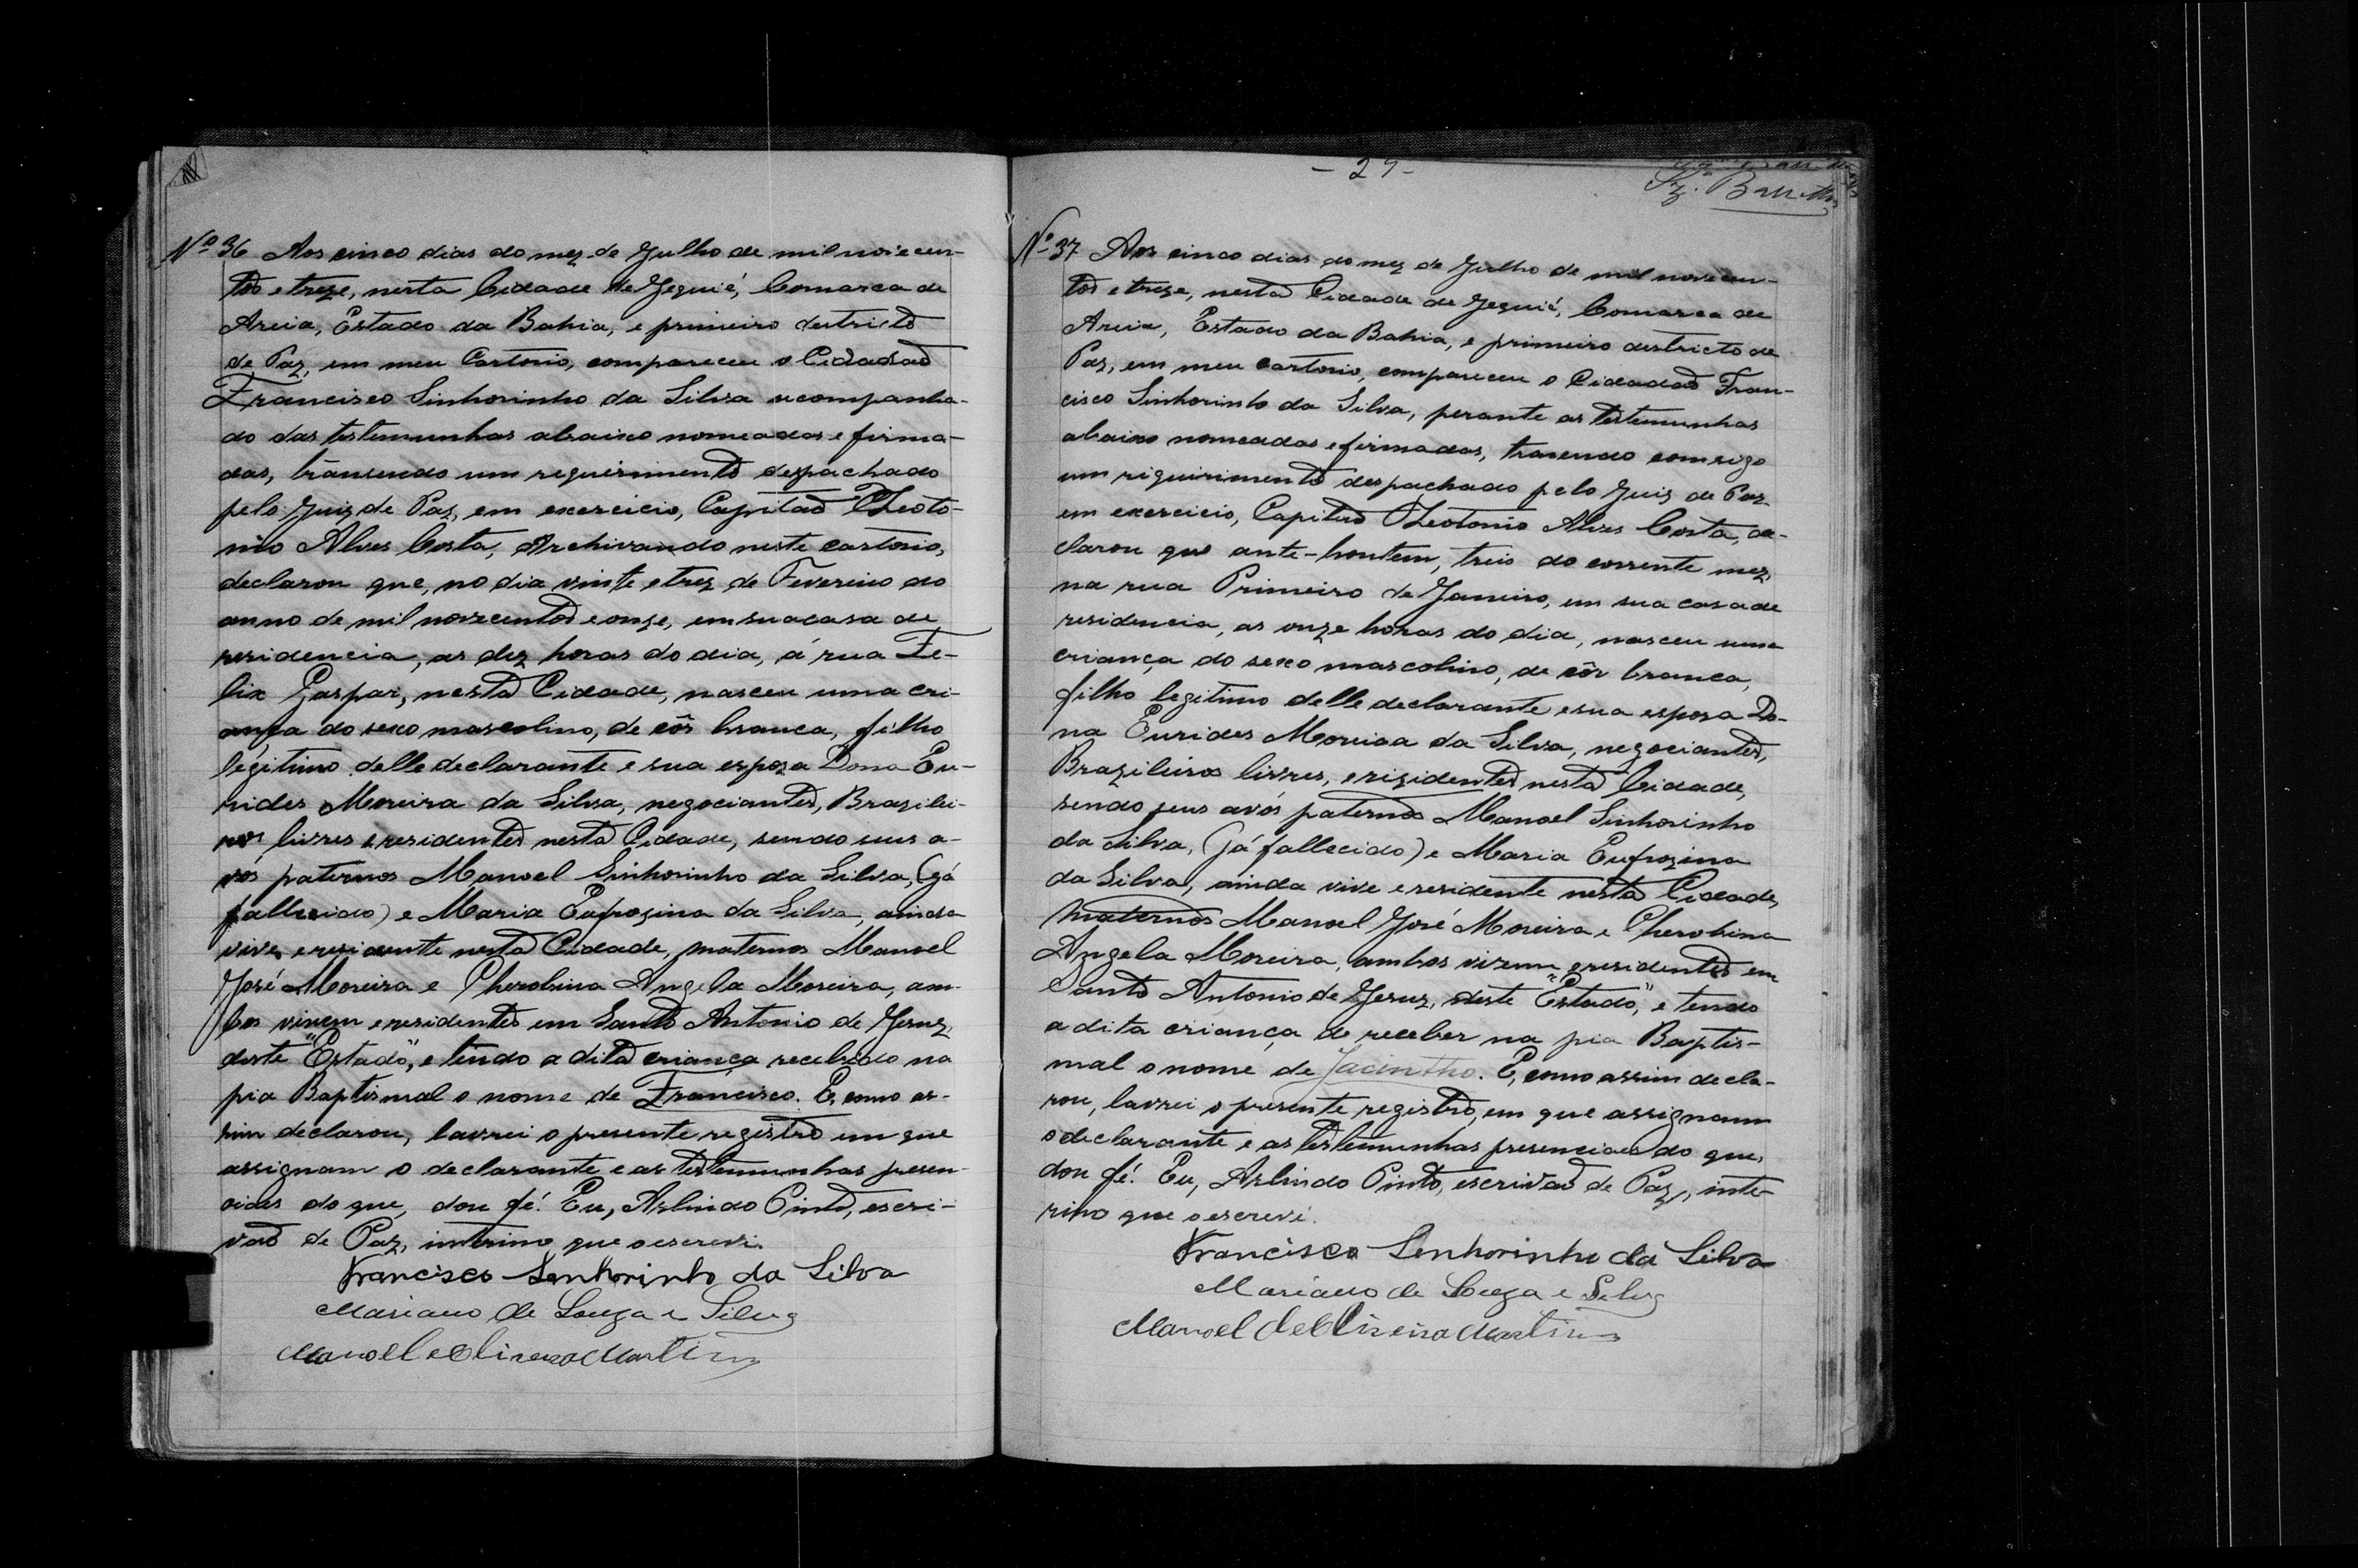 Nº 36 Aos cinco dias do mez de Julho de mil novecen-
tos e treze, nesta Cidade de Jequié, Comarca de
Areia, Estado da Bahia, e primeiro destricto
de Paz, em meu Cartorio, compareceu o Cidadão
Francisco Sinhorinho da Silva acompanha-
do das testemunhas abaixo nomeadas e firma-
das, trasendo um requerimento despachado
pelo Juiz de Paz, em exercicio, Capitão Theoto-
nio Alves Costa, Archivando neste cartorio,
declarou que, no dia vinte e trez de Fevereiro do
anno de mil novecentos e onze, em sua casa de
residencia, as dez horas do dia, á rua Fe-
lix Gaspar, nesta Cidade, nasceu uma cri-
ança do sexo mascolino, de côr branca, filho
legitimo delle declarante e sua espoza Dona Eu-
rides Moreira da Silva, negociantes, Brazilei-
ros livres e residentes nesta Cidade, sendo seus a-
vós paternos Manoel Sinhorinho da Silva, (já
fallecido) e Maria Eufrozina da Silva, ainda
vive, e residente nesta Cidade, maternos Manoel
José Moreira e Pherobina Angela Moreira, am-
bos vivem e residentes em Santo Antonio de Jesuz,
deste "Estado", e tendo a dita criança recebido na
pia Baptismal o nome de Francisco. E, como as-
sim declarou, lavrei o presente registro em que
assignam o declarante e as testemunhas presen-
ciaes do que, dou fé. Eu, Arlindo Pinto, escri-
vão de Paz, interino que o escrevi.
Francisco Senhorinho da Silva
Mariano de Souza e Silva
Manoel de Oliveira Martins
- 29 -
Nº 37 Aos cinco dias do mez de Julho de mil novecen-
tos e treze, nesta Cidade de Jequié, Comarca de
Areia, Estado da Bahia, e primeiro destricto de
Paz, em meu cartorio, compareceu o Cidadão Fran-
cisco Sinhorinho da Silva, perante as testemunhas
abaixo nomeadas e firmadas, trasendo comsigo
um riquirimento despachado pelo Juiz de Paz
em exercicio, Capitão Theotonio Alves Costa, de-
clarou que ante-hontem, treis do corrente mez,
na rua Primeiro de Janeiro, em sua casa de
residencia, as onze horas do dia, nasceu uma
criança do sexo mascolino, de côr branca,
filho legitimo delle declarante e sua esposa Do-
na Eurides Moreira da Silva, negociantes,
Brazileiros livres, e rizidentes nesta Cidade,
sendo seus avós paternos Manoel Sinhorinho
da Silva, (já fallecido) e Maria Eufrozina
da Silva, ainda vive e residente nesta Cidade,
maternos Manoel José Moreira e Pherobina
Angela Moreira, ambos vivem e residentes em
Santo Antonio de Jesuz, deste "Estado", e tendo
a dita criança de receber na pia Baptis-
mal o nome de Jacintho. E, como assim decla-
rou, lavrei o presente registro, em que assignam
o declarante e as testemunhas presenciaes do que,
dou fé. Eu, Arlindo Pinto, escrivão de Paz, inte-
rino que o escrevi.
Francisco Senhorinho da Silva
Mariano de Souza e Silva
Manoel de Oliveira Martins